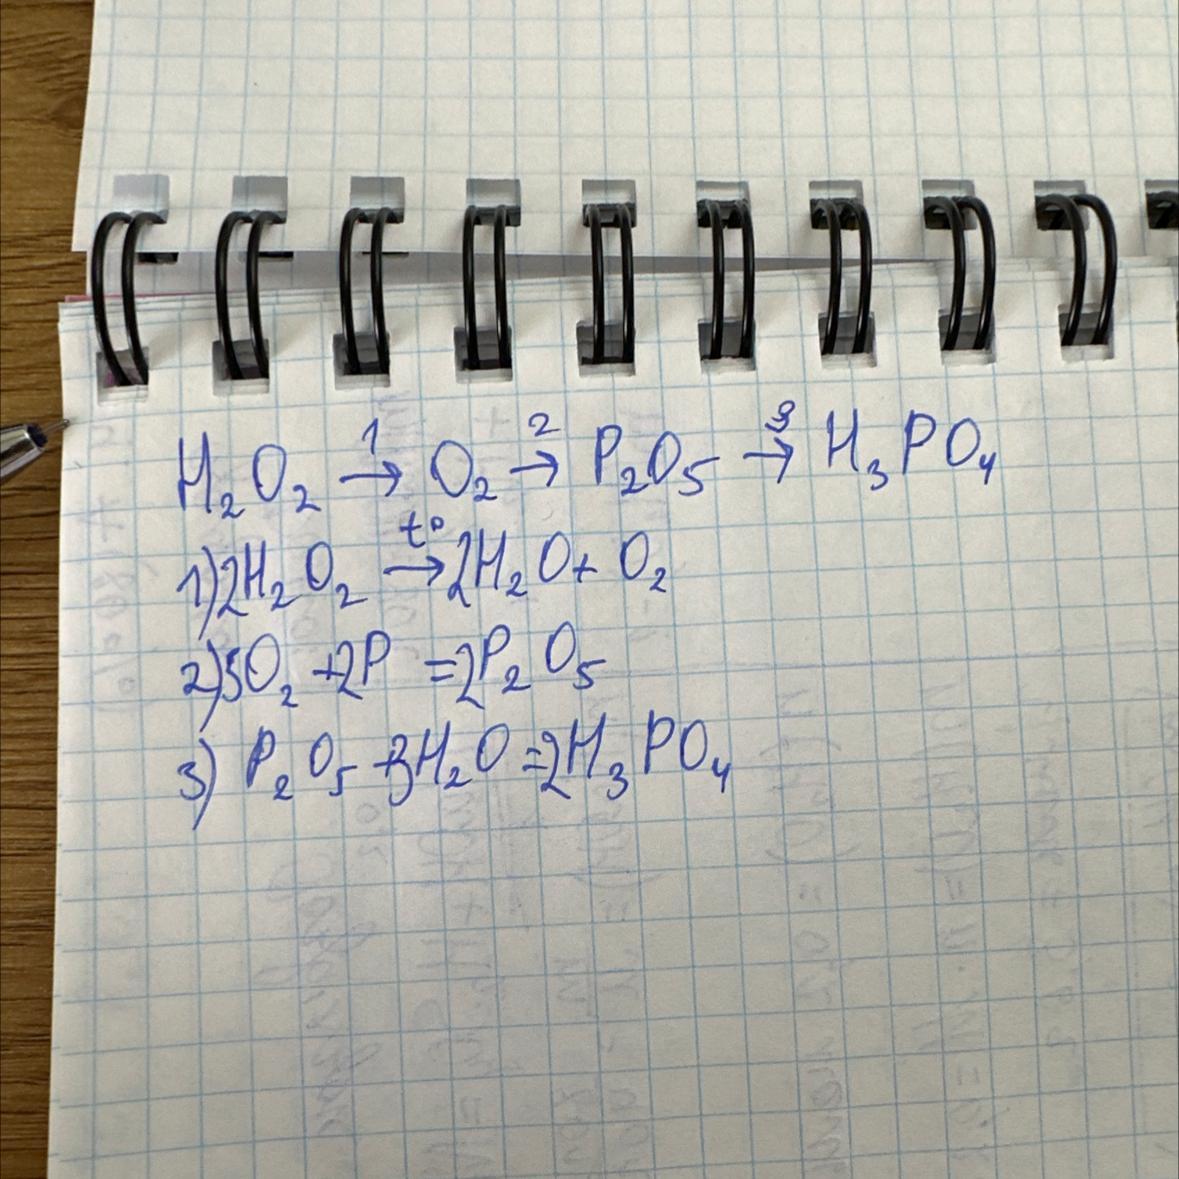 H₂O₂ →¹ O₂ →² P₂O₅ →³ H₃PO₄
1) 2H₂O₂ →t° 2H₂O + O₂
2) 5O₂ + 2P = 2P₂O₅
3) P₂O₅ + 3H₂O = 2H₃PO₄